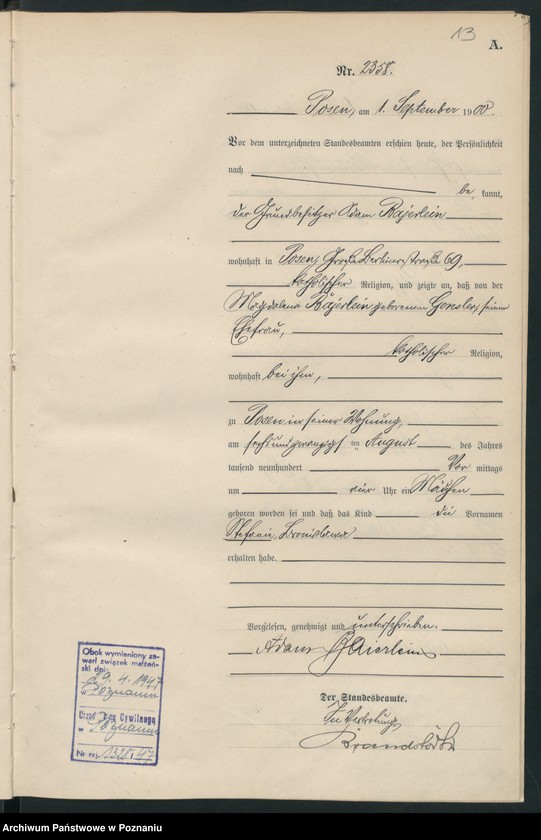 13
A.
Nr. 2358.
Posen, am 1. September 1900.
Vor dem unterzeichneten Standesbeamten erschien heute, der Persönlichkeit
nach
be kannt,
der Grundbesitzer Adam Bajerlein
wohnhaft in Posen, Große Berlinerstraße 69,
katholischer Religion, und zeigte an, daß von der
Magdalena Bajerlein geborenen Gensler, seiner
Ehefrau,
katholischer Religion,
wohnhaft bei ihm,
zu Posen in seiner Wohnung,
am sechsundzwanzigsten August des Jahres
tausend neunhundert Vor mittags
um vier Uhr ein Mädchen
geboren worden sei und daß das Kind die Vornamen
Stefanie Bronislawa
erhalten habe.
Vorgelesen, genehmigt und unterschrieben.
Adam Bajerlein
Der Standesbeamte.
In Vertretung
Obok wymieniony za-
warł związek małżeń-
ski dnia
9. 4. 1947
w Poznaniu
Urząd Stanu Cywilnego
w Poznaniu
Nr rej. 1328/47
Archiwum Państwowe w Poznaniu